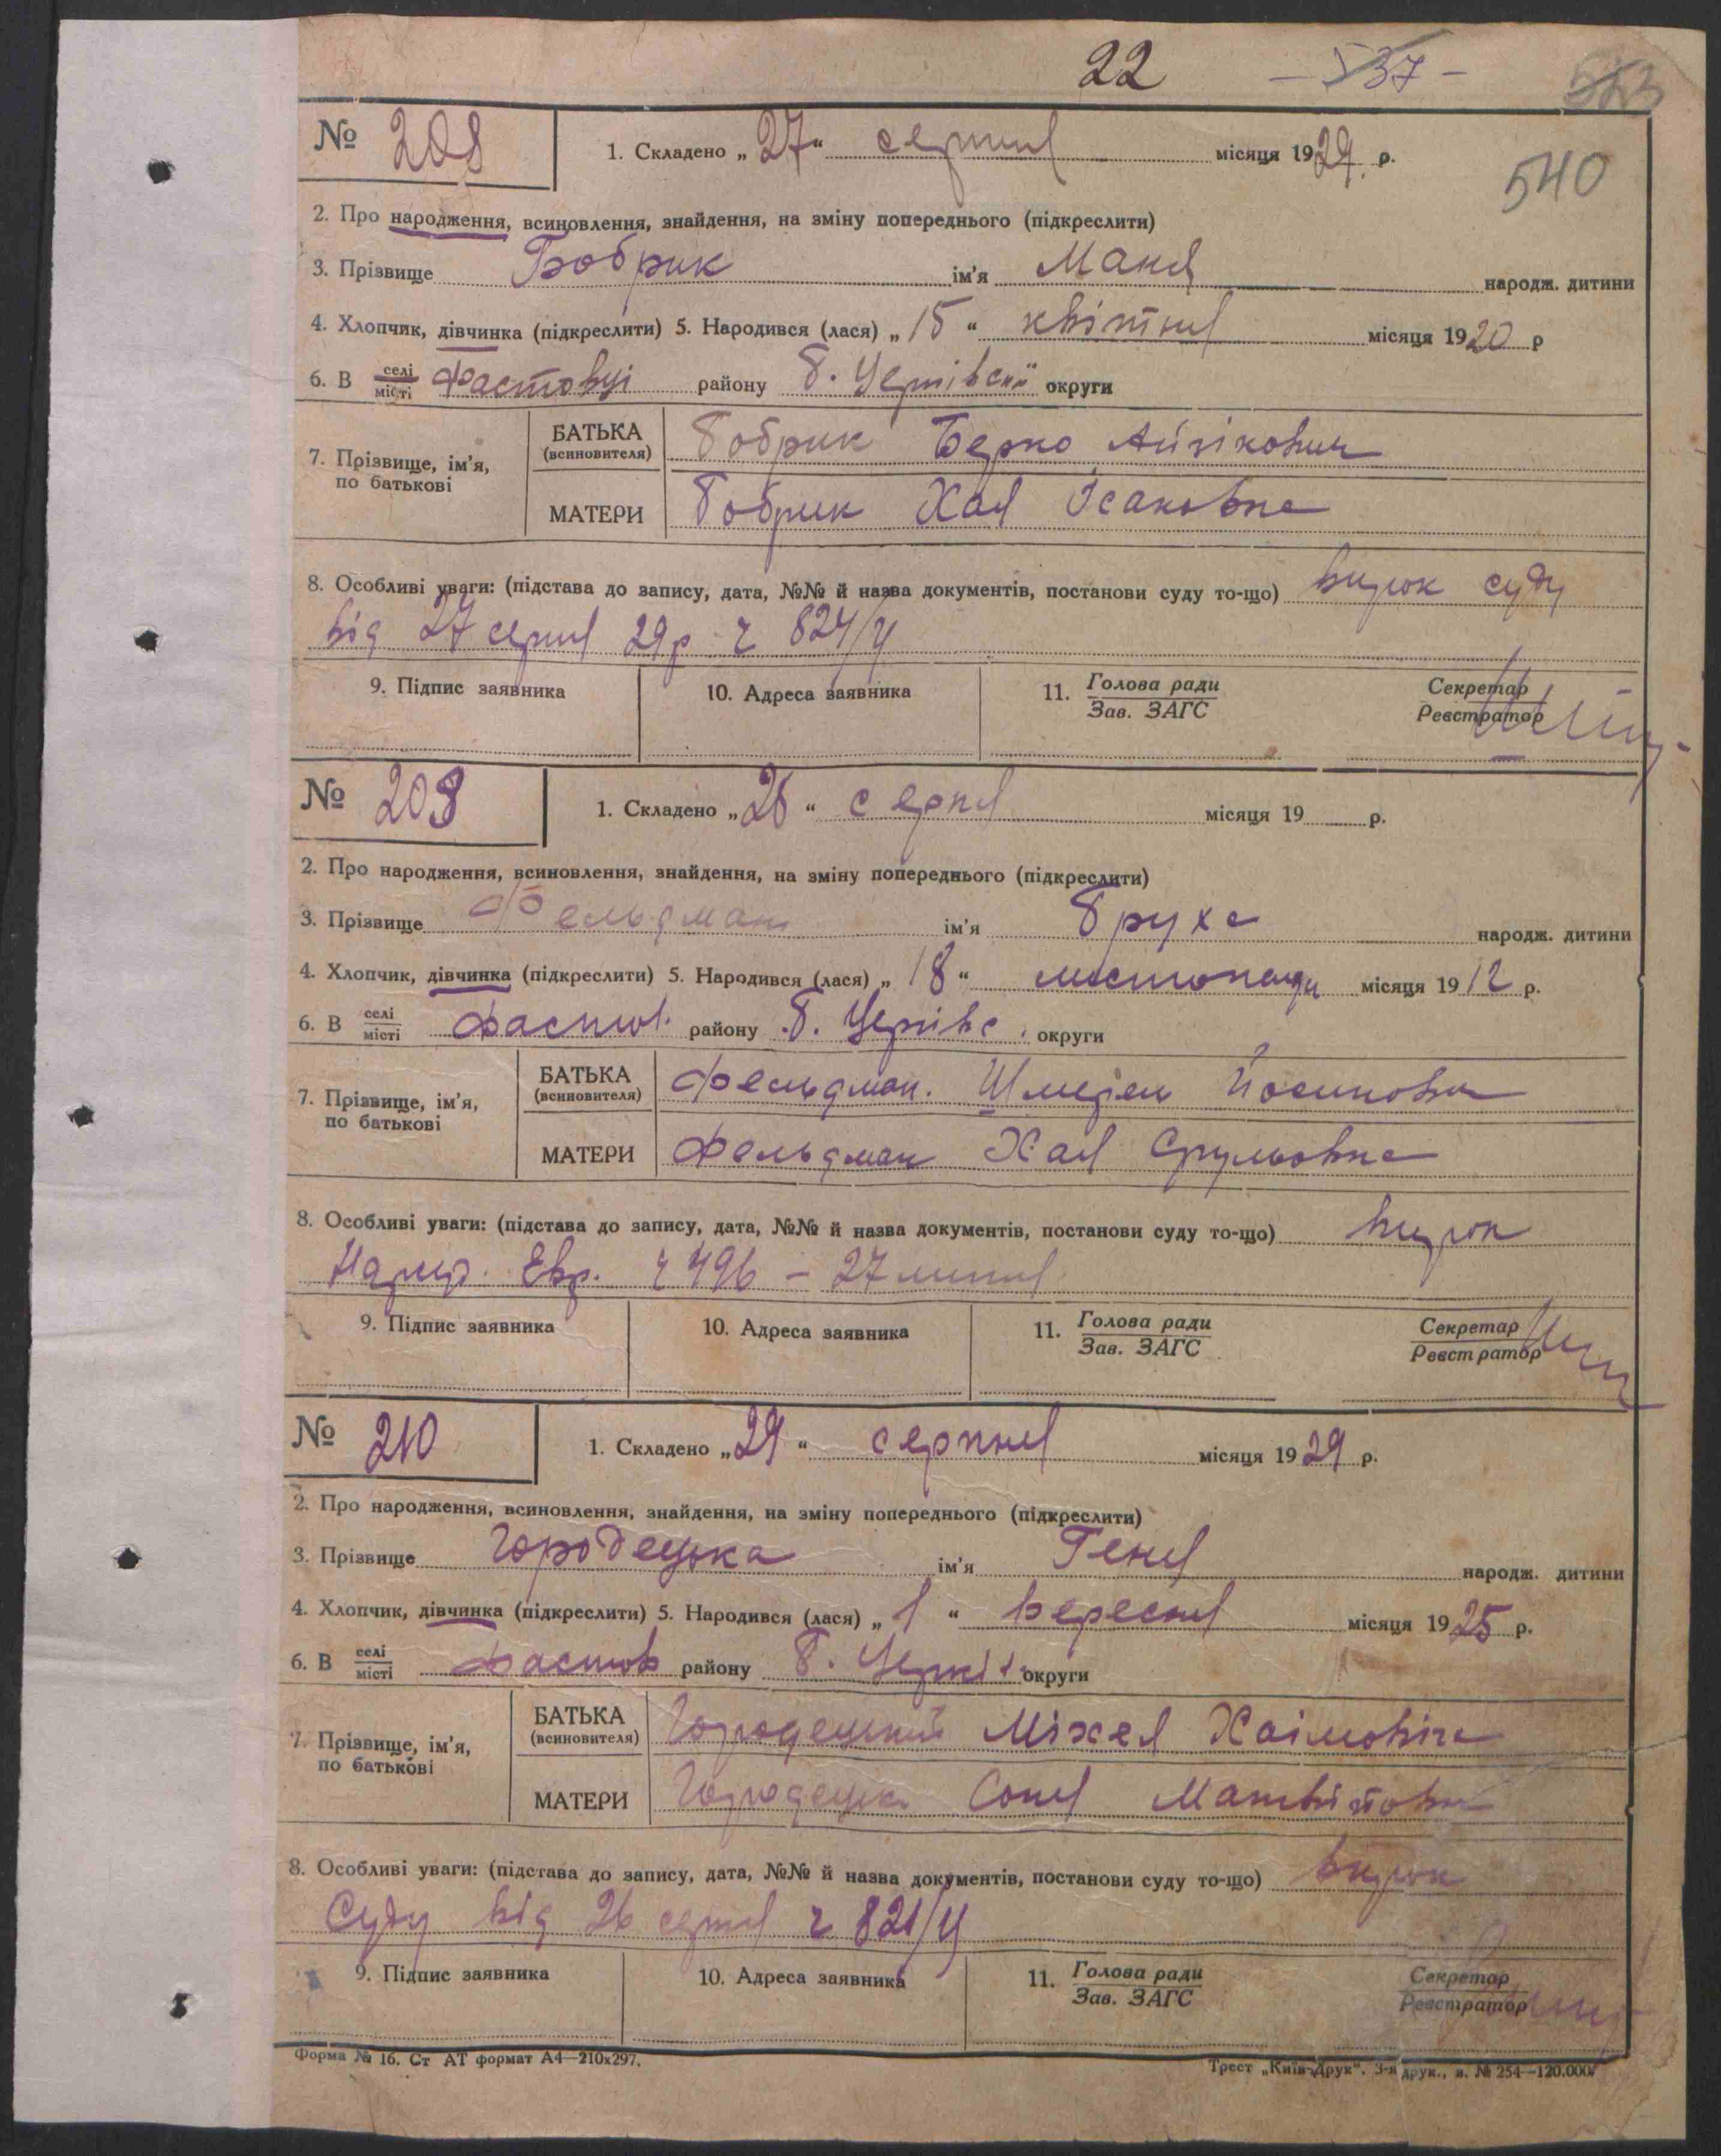 22 – 537 – 
540
№ 208 1. Складено „27“ серпня місяця 1929 р.
2. Про народження, всиновлення, знайдення, на зміну попереднього (підкреслити)
3. Прізвище Бобрик ім'я Маня народж. дитини
4. Хлопчик, дівчинка (підкреслити) 5. Народився (лася) „15“ квітня місяця 1920 р
6. В селі/місті Фастовці району Б. Чернівськ округи
7. Прізвище, ім'я, по батькові
БАТЬКА (всиновителя) Бобрик Берко Айзікович
МАТЕРИ Бобрик Хая Ісаковна
8. Особливі уваги: (підстава до запису, дата, №№ й назва документів, постанови суду то-що) вирок суду
від 27 серпня 29 р. ч 824/у
9. Підпис заявника 10. Адреса заявника 11. Голова ради Секретар
Зав. ЗАГС Реєстратор
№ 209 1. Складено „26“ серпня місяця 19 р.
2. Про народження, всиновлення, знайдення, на зміну попереднього (підкреслити)
3. Прізвище Фельдман ім'я Бруха народж. дитини
4. Хлопчик, дівчинка (підкреслити) 5. Народився (лася) „18“ листопада місяця 1912 р.
6. В селі/місті Фастов. району Б. Чернівс. округи
7. Прізвище, ім'я, по батькові
БАТЬКА (всиновителя) Фельдман Йосипович
МАТЕРИ Фельдман Хая Срульовна
8. Особливі уваги: (підстава до запису, дата, №№ й назва документів, постанови суду то-що) вирок
Нарсуд. Евр. ч 496 – 27 липня
9. Підпис заявника 10. Адреса заявника 11. Голова ради Секретар
Зав. ЗАГС Реєстратор
№ 210 1. Складено „29“ серпня місяця 1929 р.
2. Про народження, всиновлення, знайдення, на зміну попереднього (підкреслити)
3. Прізвище Городецька ім'я Геня народж. дитини
4. Хлопчик, дівчинка (підкреслити) 5. Народився (лася) „1“ вересня місяця 1925 р.
6. В селі/місті Фастов району Б. округи
7. Прізвище, ім'я, по батькові
БАТЬКА (всиновителя) Городецький Міхел Хаімовіч
МАТЕРИ Городецька Соня Матвійовна
8. Особливі уваги: (підстава до запису, дата, №№ й назва документів, постанови суду то-що) вирок
Суду від 26 серпня ч 821/у
9. Підпис заявника 10. Адреса заявника 11. Голова ради Секретар
Зав. ЗАГС Реєстратор
Форма № 16. Ст АТ формат А4—210х297. Трест „Київ-Друк“. 3-я друк., з. № 254—120.000